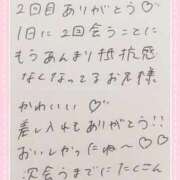 2回目ありがとう♡
1日に2回会うことに
もうあんまり抵抗感
なくなってるお兄様
かわいい♡
差し入れもありがとう!!
おいしかったね〜♡
次会うまでにたくさん